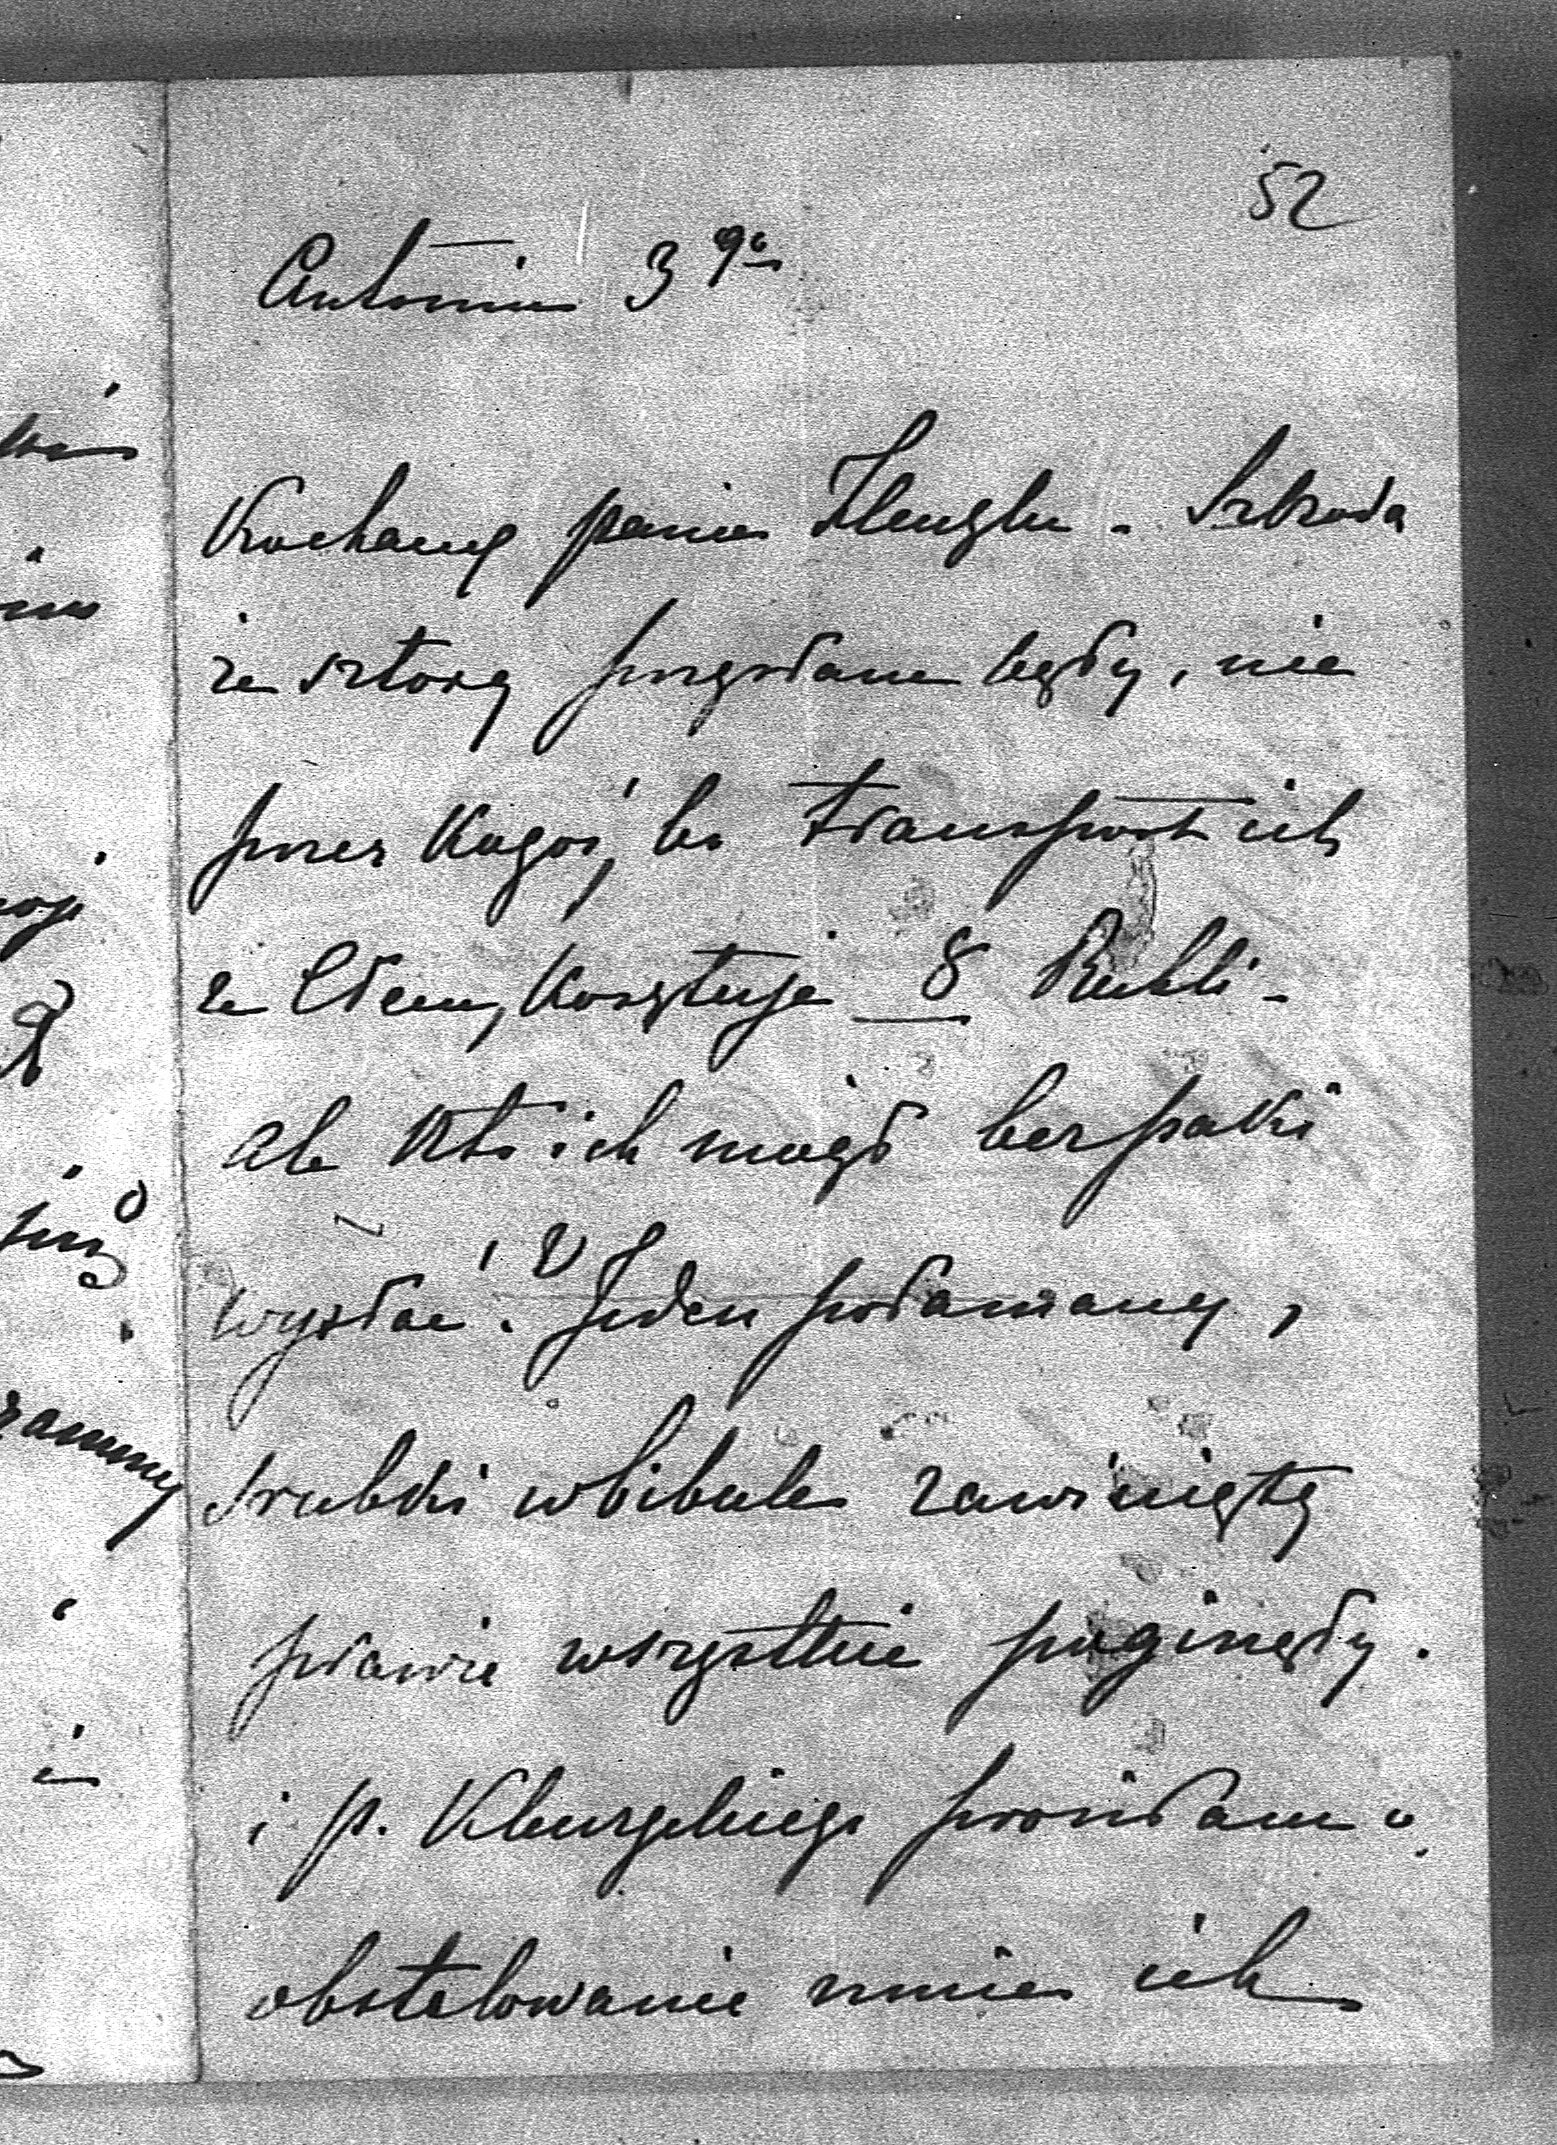 52
Antonin 3 9º
Kochany panie Henglu. Szkoda
że sztory przysłane były, nie
przez kogoś, bo transport ich
ze Cłem, kosztuje 8 Rubli.
ale kto ich mógł bez paki
wysłać. Jeden połamany,
srubki w bibule zawinięte
prawie wszystkie poginęły.
i p. Kluszelnicki prosiłam o
obstelowanie mnie ich